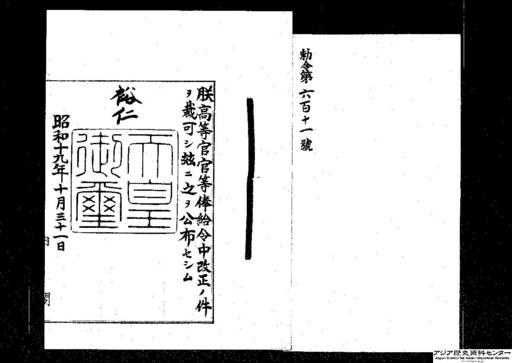 勅令第六百十一號
朕高等官官等俸給令中改正ノ件
ヲ裁可シ茲ニ之ヲ公布セシム
裕仁
天皇御璽
昭和十九年十月三十一日
内閣
アジア歴史資料センター
Japan Center for Asian Historical Records